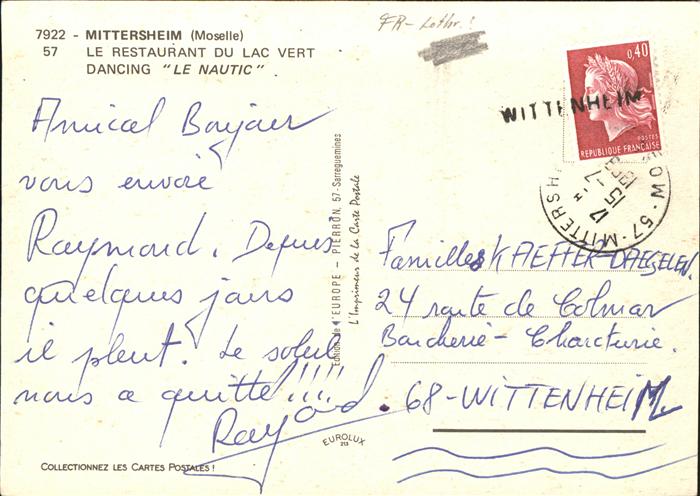 7922 - MITTERSHEIM (Moselle)
57 LE RESTAURANT DU LAC VERT
DANCING "LE NAUTIC"
FR-Lothr.!
0,40
POSTES
REPUBLIQUE FRANÇAISE
WITTENHEIM
57-MITTERSH
17 H
15-7
Amical Bonjour
vous envoie
Raymond. Depuis
quelques jours
il pleut. Le soleil
nous a quitté!!!!
Raymond.
Edition de l'EUROPE - PIERRON, 57-Sarreguemines
L'Imprimeur de la Carte Postale
Familles KAEFFER-DAEGELEN.
24 route de Colmar
Boucherie-Charcuterie.
68-WITTENHEIM.
EUROLUX
213
COLLECTIONNEZ LES CARTES POSTALES !